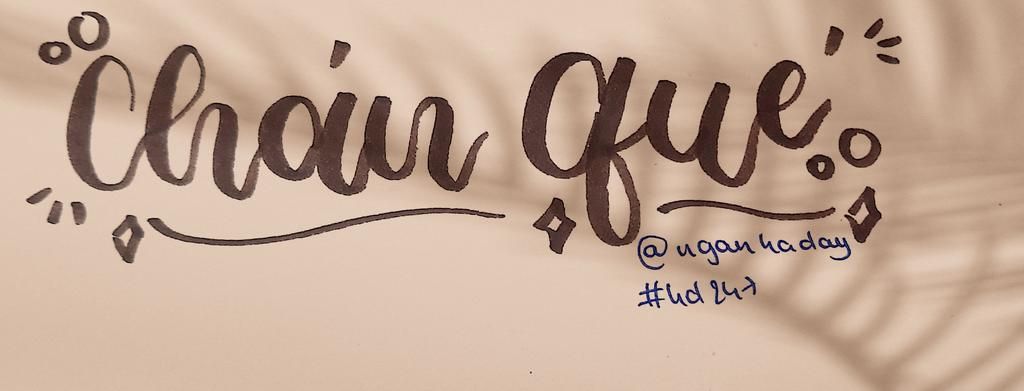 Chán qué
@nganhaday
#hd247